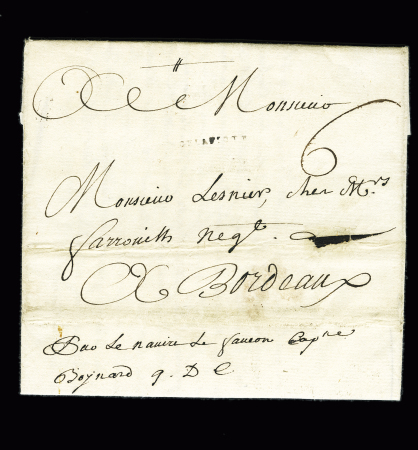 A Monsieur
6
Monsieur Lesnier, chez Mrs
negt.
A Bordeaux
Par Le navire Le faucon Capne
Boynard q. D C